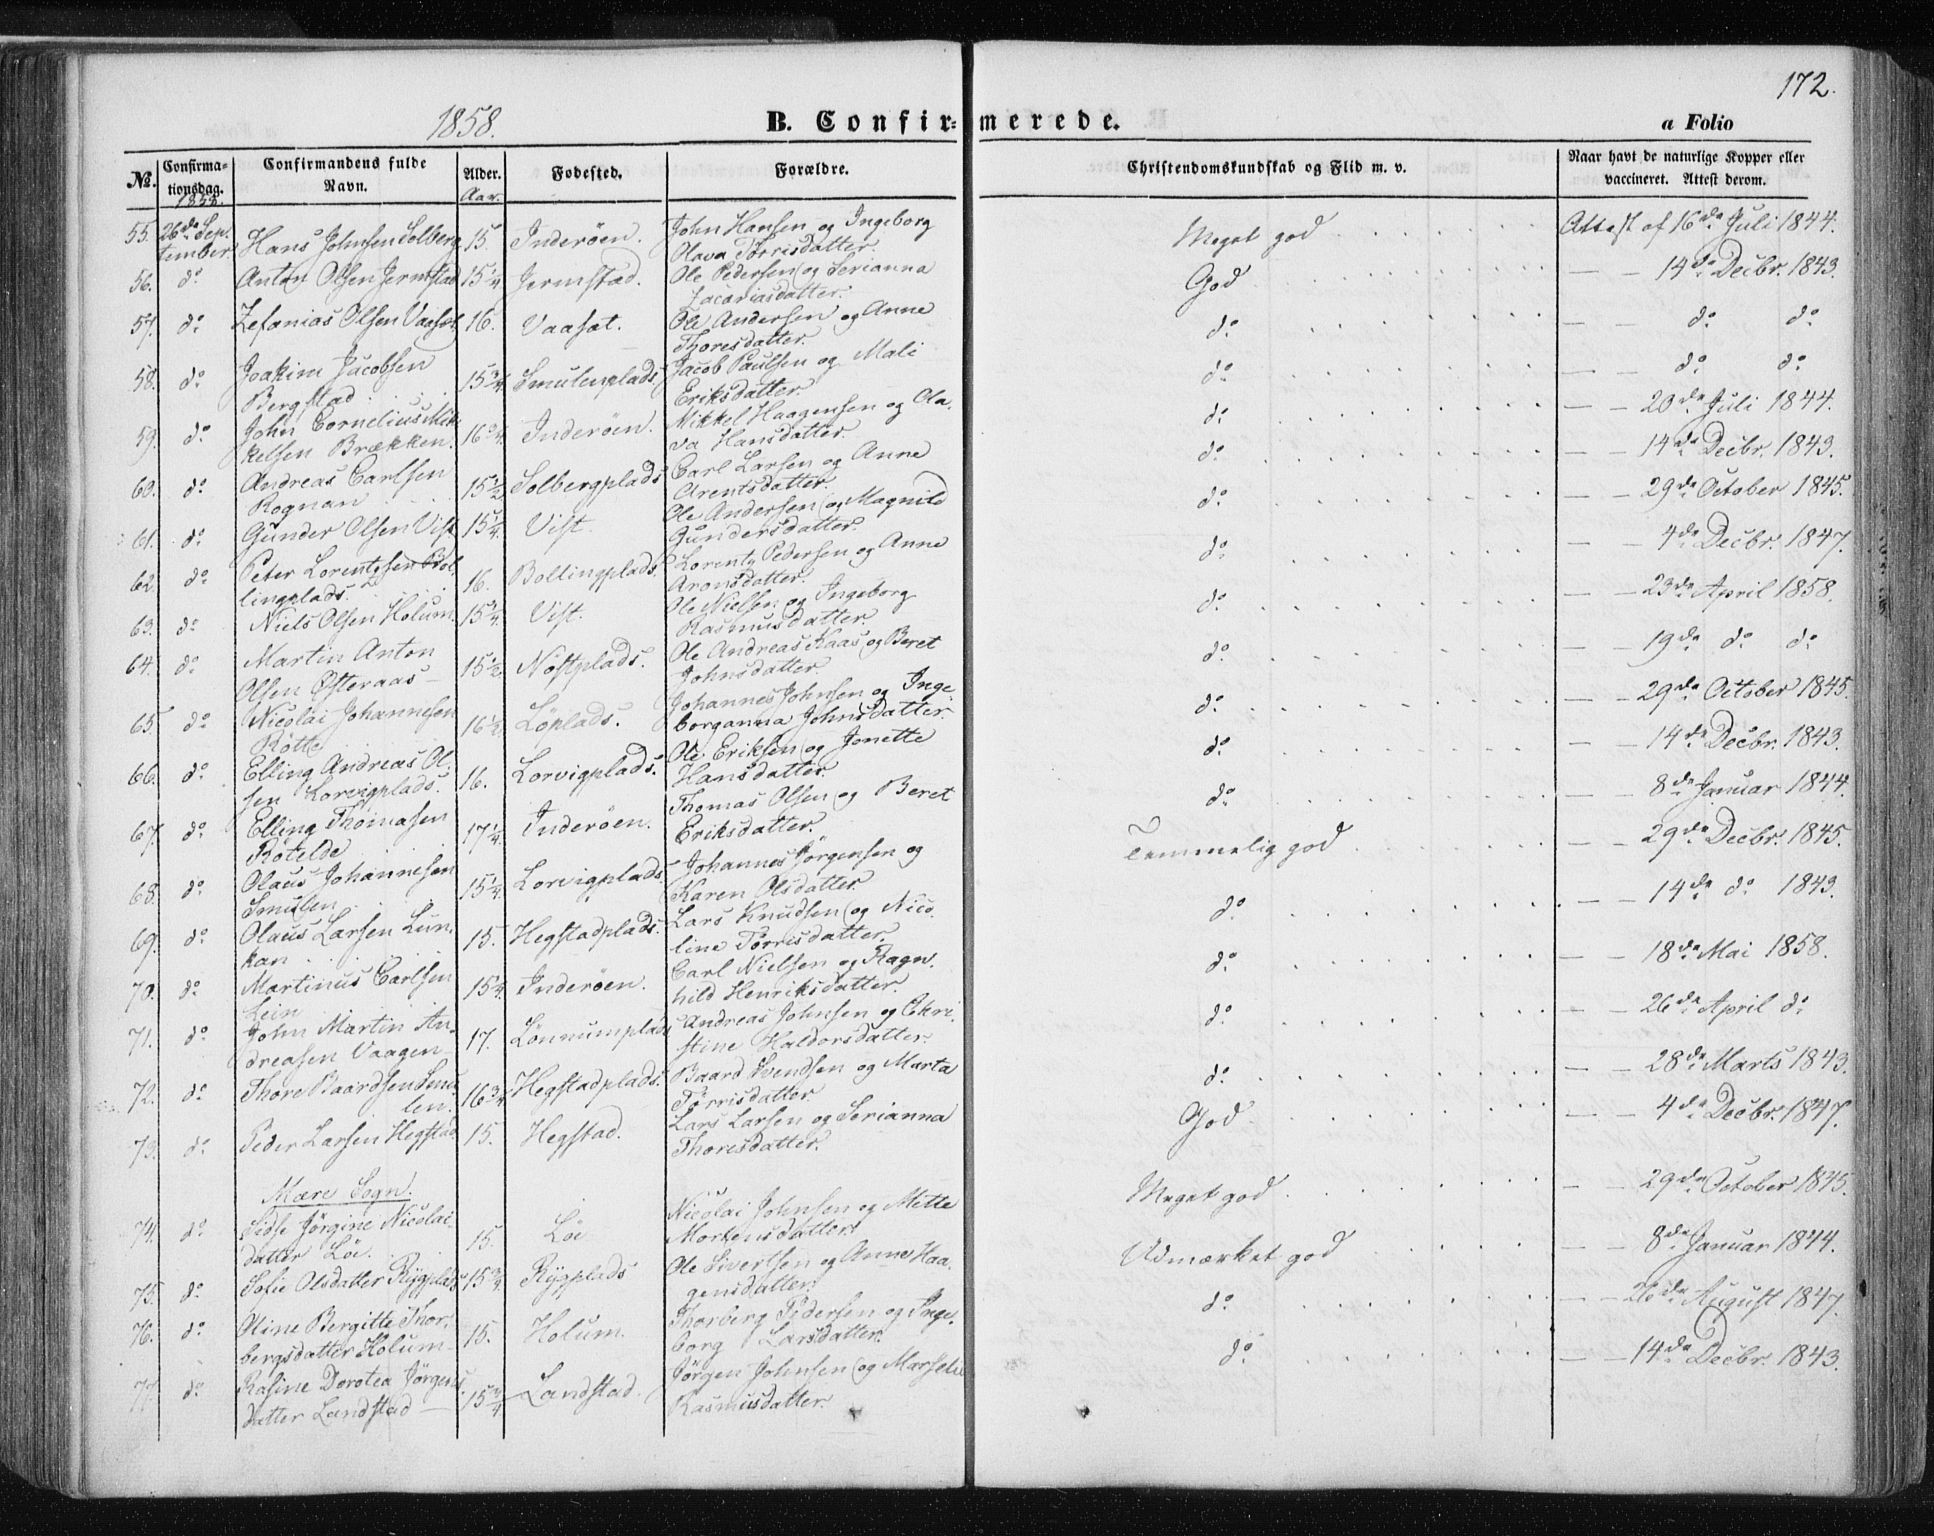 172.
1858.
B. Confirmerede.
a Folio
No. Confirmationsdag. Confirmandens fulde Navn. Alder. Fødested. Forældre. Christendomskundskab og Flid m. v. Naar havt de naturlige Kopper eller vaccineret. Attest derom.
1858. Aar.
55. 26de September Hans Johnsen Solberg 15. Inderøen. John Hansen og Ingeborg Olava Tørrisdatter. Meget god Attest af 16de Juli 1844.
56. do Anton Olsen Jermstad 15 1/4 Jermstad. Ole Pedersen og Serianna Zacariasdatter. God — — 14de Decbr. 1843.
57. do Zefanias Olsen Vaasæt 16. Vaasæt. Ole Andersen og Anne Thoresdatter. do — — do do
58. do Joakim Jacobsen Bergstad 15 3/4 Smulenplads. Jacob Paulsen og Mali Eriksdatter. do — — do do
59. do John Cornelius Mikkelsen Brækken. 16 3/4 Inderøen. Mikkel Haagensen og Olava Hansdatter. do — — 20de Juli 1844.
60. do Andreas Carlsen Rognan 15 1/2 Solbergplads Carl Larsen og Anne Arentsdatter. do — — 14de Decbr. 1843.
61. do Gunder Olsen Vist 15 1/4. Vist Ole Andersen og Magnild Gundersdatter. do — — 29de October 1845.
62. do Peter Lorentsen Bollingplads. 16. Bollingplads. Lorents Pedersen og Anne Aronsdatter. do — — 4de Decbr. 1847.
63. do Niels Olsen Holum. 15 3/4. Vist. Ole Nielsen og Ingeborg Rasmusdatter do — — 23de April 1858.
64. do Martin Anton Olsen Østeraas — 15 1/2. Nøstplads. Ole Andreas Kaas og Beret Johnsdatter. do — — 19de do do
65. do Nicolai Johannesen Røtte 16 1/2 Löplads. Johannes Johnsen og Ingeborganna Johnsdatter. do — — 29de October 1845.
66. do Elling Andreas Olsen Korvigplads. 16. Lorvigplads. Ole Eriksen og Jonette Hansdatter. do — — 14de Decbr. 1843.
67. do Elling Thomasen Røtelde 17 1/4. Inderøen. Thomas Olsen og Beret Eriksdatter. do — — 8de Januar 1844.
68. do Olaus Johannesen Smulen 15 1/4. Lorvigplads Johannes Jørgensen og Karen Olsdatter Temmelig god — — 29de Decbr. 1845.
69. do Olaus Larsen Lunkan 15. Hegstadplads. Lars Knudsen og Nicoline Tørrisdatter. do — — 14de do 1843.
70. do Martinus Carlsen Lein 15 1/4. Inderøen. Carl Nielsen og Ragnhild Henriksdatter. do — — 18de Mai 1858.
71. do John Martin Andreasen Vaagen 17. Lønnumplads Andreas Johnsen og Christine Haldorsdatter. do — — 26de April do
72. do Thore Baardsen Smulen. 16 3/4 Hegstadplads. Baard Svendsen og Marta Tørrisdatter do — — 28de Marts 1843.
73. do Peder Larsen Hegstad 15. Hegstad. Lars Larsen og Serianna Thoresdatter. God — — 4de Decbr. 1847.
Mære Sogn.
74. do Sidse Jørgine Nicolaidatter Löe. 15. Löe Nicolai Johnsen og Mette Mortensdatter. Meget god — — 29de October 1845.
75. do Sofie Olsdatter Rygplads 15 3/4 Rygplads Ole Sivertsen og Anne Haagensdatter. Udmærket god — — 8de Januar 1844.
76. do Oline Bergitte Thorbergsdatter Holum 15. Holum. Thorberg Pedersen og Ingeborg Larsdatter. do — — 26de August 1847.
77. do Rasine Dorotea Jørgensdatter Landstad — 15 3/4 Landstad. Jørgen Johnsen og Marselie Rasmusdatter. do — — 14de Decbr. 1843.